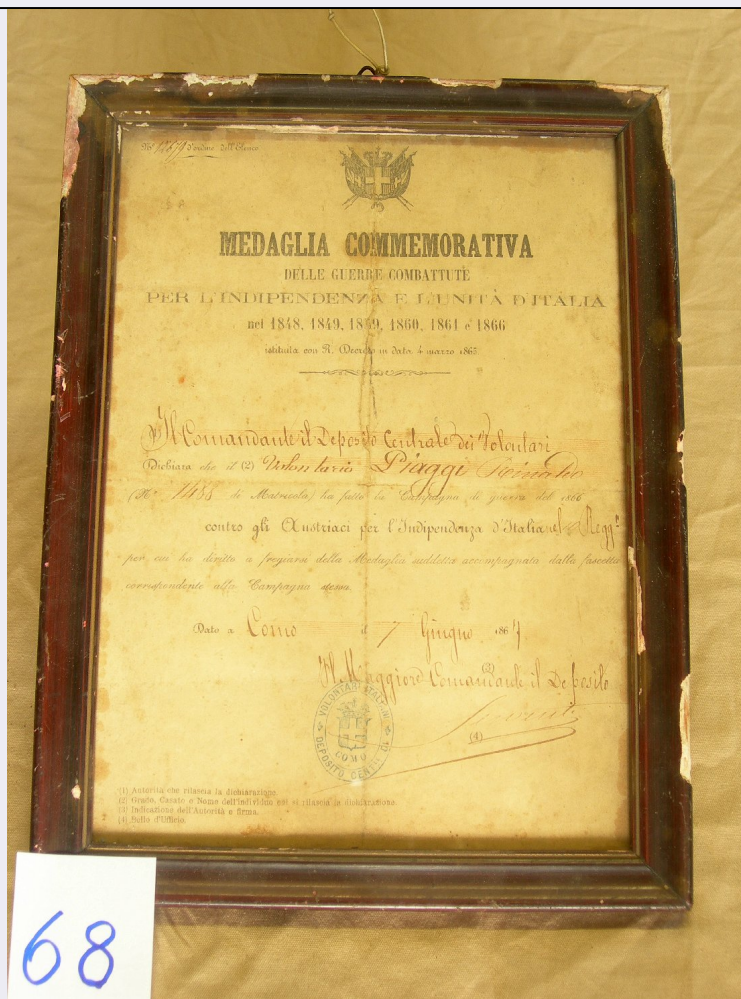 d'ordine dell'Elenco
MEDAGLIA COMMEMORATIVA
DELLE GUERRE COMBATTUTE
PER L'INDIPENDENZA E L'UNITÀ D'ITALIA
nel 1848, 1849, 1859, 1860, 1861 e 1866
istituita con R. Decreto in data 4 marzo 1865
Il Comandante il Deposito Centrale dei Volontari
Dichiara che il (2) Volontario Piaggi
(N° di Matricola) ha fatto la Campagna di guerra del 1866
contro gli Austriaci per l'Indipendenza d'Italia nel Regg.
per cui ha diritto a fregiarsi della Medaglia suddetta accompagnata dalla fascetta
corrispondente alla Campagna stessa.
Dato a Como il 7 Giugno 1867
Il Maggiore Comandante il Deposito
(4)
VOLONTARI ITALIANI
DEPOSITO
COMO
(1) Autorità che rilascia la dichiarazione.
(2) Grado, Casato e Nome dell'individuo cui si rilascia la dichiarazione.
(3) Indicazione dell'Autorità e firma.
(4) Bollo d'Ufficio.
68